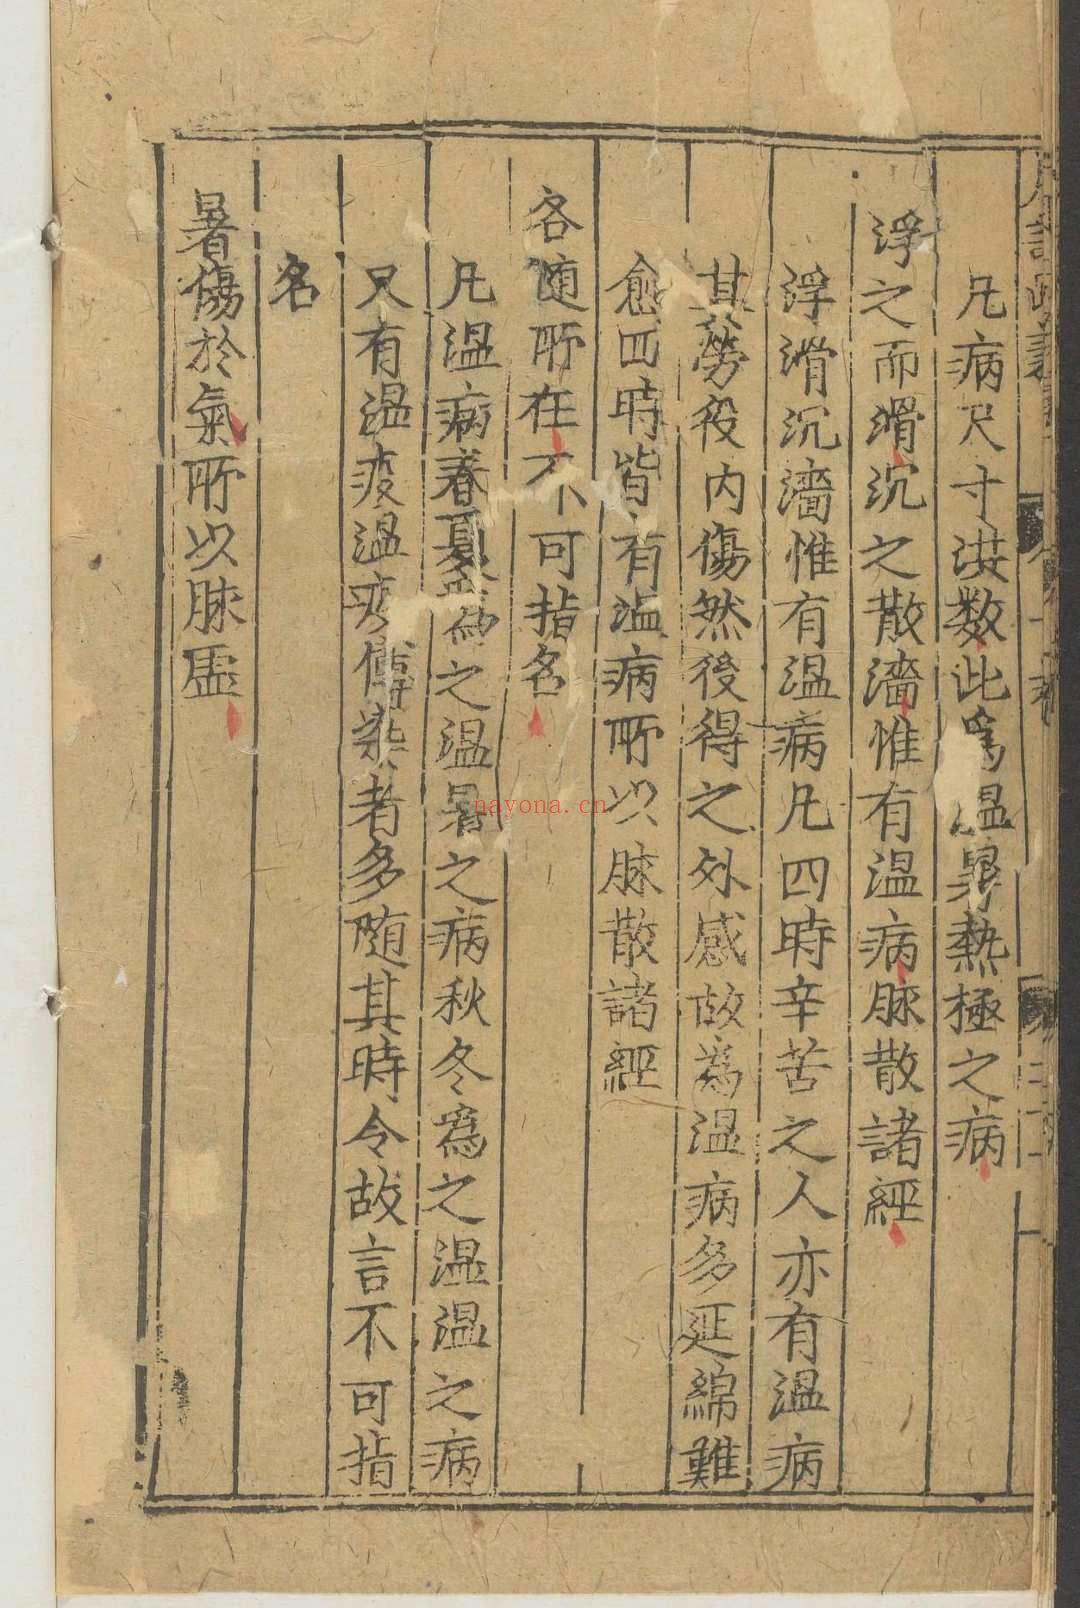 凡病尺寸洪数此為温暑熱極之病
浮之而滑沉之散濇惟有温病脉散諸經
浮滑沉濇惟有温病凡四時辛苦之人亦有温病
其勞役内傷然後得之外感故為温病多延綿難
愈四時皆有温病所以脉散諸經
各随所在不可指名
凡温病春夏為之温暑之病秋冬為之温温之病
又有温疫温疫傳染者多随其時令故言不可指
名
暑傷於氣所以脉虚
nayona.cn